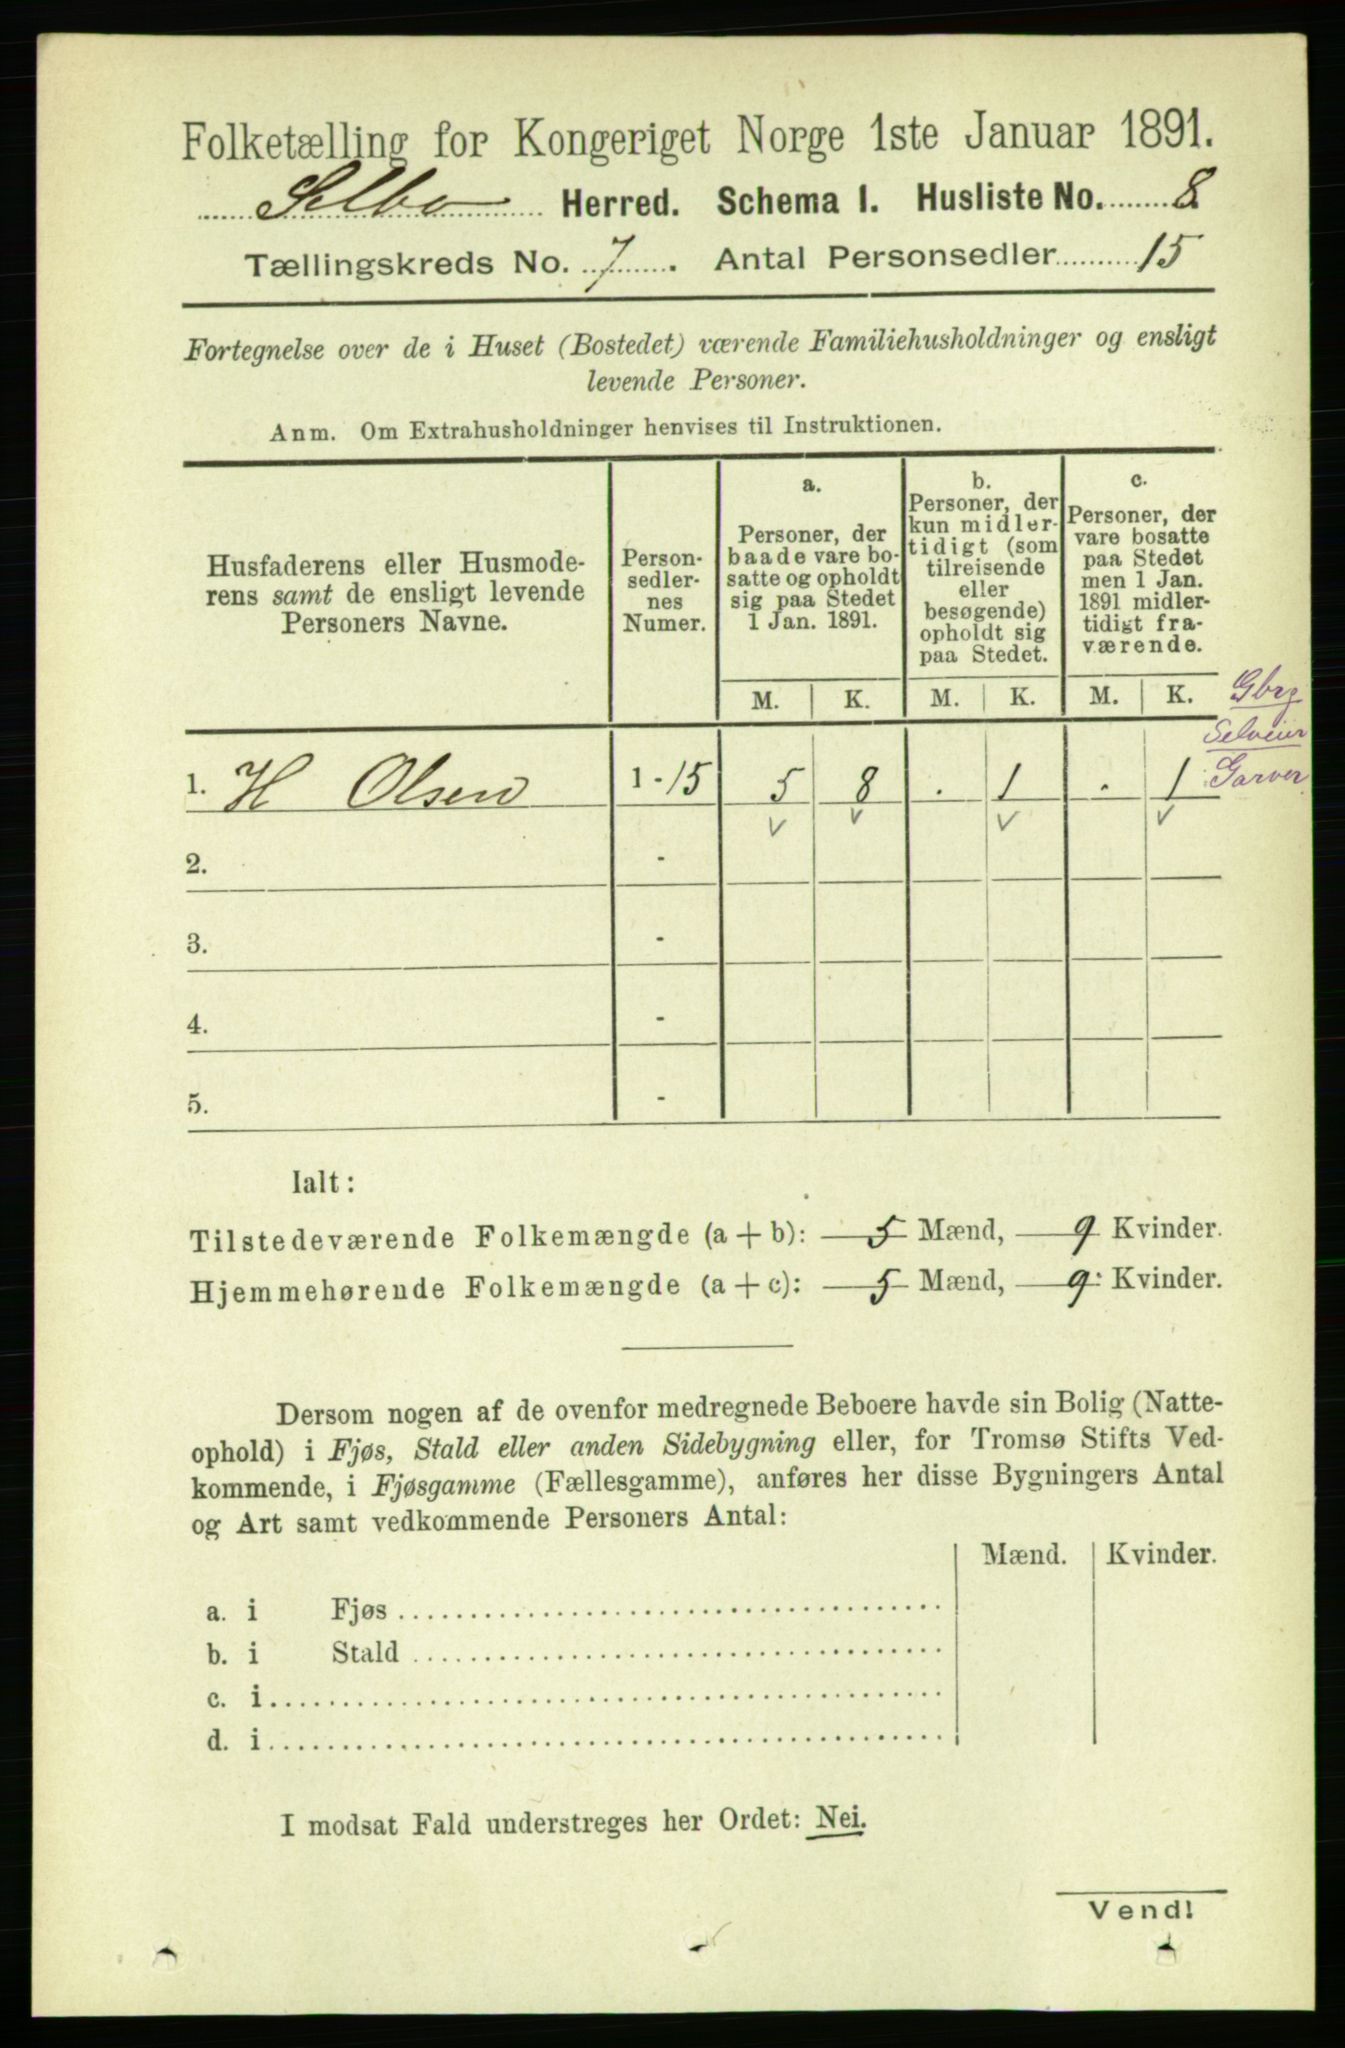 Folketælling for Kongeriget Norge 1ste Januar 1891.
Selbo Herred. Schema I. Husliste No. 8
Tællingskreds No. 7. Antal Personsedler 15
Fortegnelse over de i Huset (Bostedet) værende Familiehusholdninger og ensligt
levende Personer.
Anm. Om Extrahusholdninger henvises til Instruktionen.
Husfaderens eller Husmode-
rens samt de ensligt levende
Personers Navne.
Person-
sedler-
nes
Numer.
a.
Personer, der
baade vare bo-
satte og opholdt
sig paa Stedet
1 Jan. 1891.
b.
Personer, der
kun midler-
tidigt (som
tilreisende
eller
besøgende)
opholdt sig
paa Stedet.
c.
Personer, der
vare bosatte
paa Stedet
men 1 Jan.
1891 midler-
tidigt fra-
værende.
M. K. M. K. M. K.
Gbrg
Selveier
Garver
1. H Olsen 1 - 15 5 8 . 1 . 1
2. -
3. -
4. -
5. -
Ialt:
Tilstedeværende Folkemængde (a + b): 5 Mænd, 9 Kvinder.
Hjemmehørende Folkemængde (a + c): 5 Mænd, 9 Kvinder.
Dersom nogen af de ovenfor medregnede Beboere havde sin Bolig (Natte-
ophold) i Fjøs, Stald eller anden Sidebygning eller, for Tromsø Stifts Ved-
kommende, i Fjøsgamme (Fællesgamme), anføres her disse Bygningers Antal
og Art samt vedkommende Personers Antal:
Mænd. Kvinder.
a. i Fjøs
b. i Stald
c. i
d. i
I modsat Fald understreges her Ordet: Nei.
Vend!